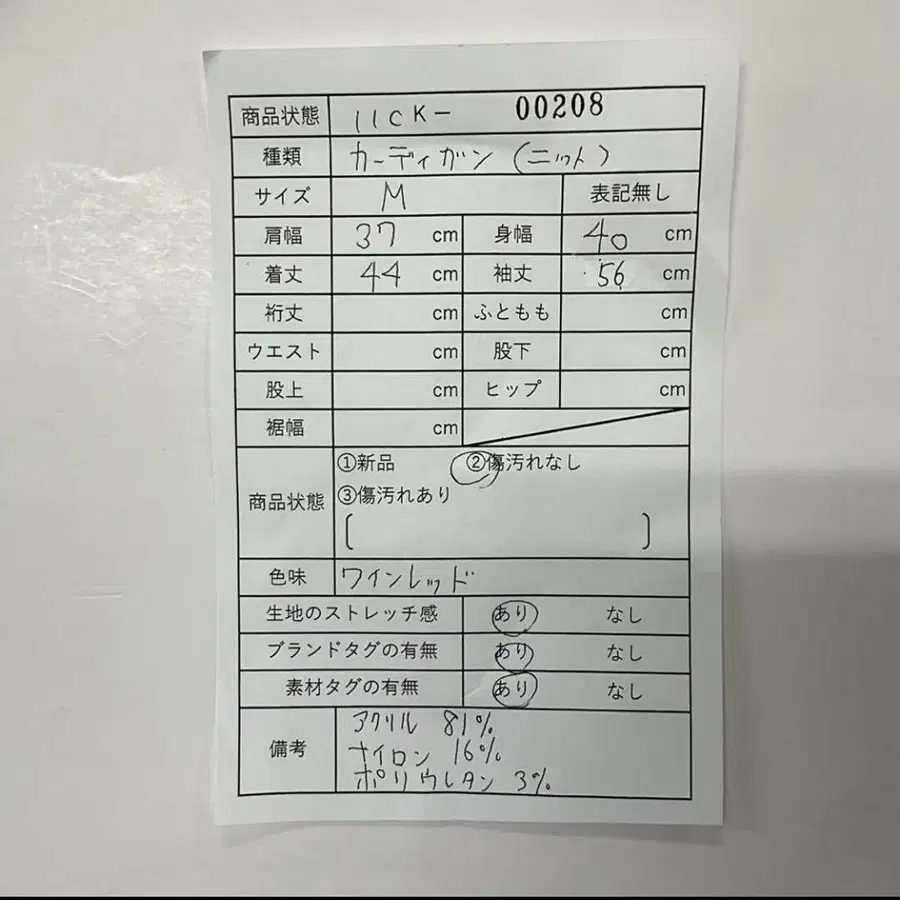 商品状態 11CK- 00208
種類 カーディガン(ニット)
サイズ M 表記無し
肩幅 37 cm 身幅 40 cm
着丈 44 cm 袖丈 56 cm
裄丈 cm ふともも cm
ウエスト cm 股下 cm
股上 cm ヒップ cm
裾幅 cm
商品状態 ①新品 ②傷汚れなし
③傷汚れあり
[ ]
色味 ワインレッド
生地のストレッチ感 あり なし
ブランドタグの有無 あり なし
素材タグの有無 あり なし
備考 アクリル 81%
ナイロン 16%
ポリウレタン 3%